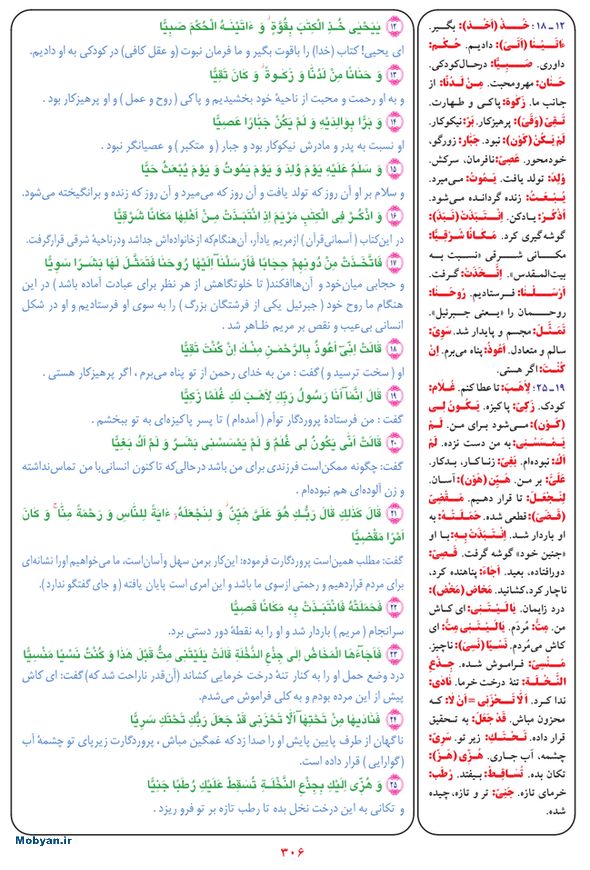 ۱۲ يَيَحْيَى خُذِ الْكِتَبَ بِقُوَّةٍ ۖ وَ ءَاتَيْنَهُ الْحُكْمَ صَبِيًّا
ای یحیی! کتاب (خدا) را باقوت بگیر و ما فرمان نبوت (و عقل کافی) در کودکی به او دادیم.
۱۳ وَ حَنَانًا مِنْ لَدُنَّا وَ زَكَوةً ۖ وَ كَانَ تَقِيًّا
و به او رحمت و محبت از ناحیهٔ خود بخشیدیم و پاکی ( روح و عمل ) و او پرهیزکار بود .
۱۴ وَ بَرًّا بِوَالِدَيْهِ وَ لَمْ يَكُنْ جَبَّارًا عَصِيًّا
او نسبت به پدر و مادرش نیکوکار بود و جبار ( و متکبر ) و عصیانگر نبود .
۱۵ وَ سَلَمٌ عَلَيْهِ يَوْمَ وُلِدَ وَ يَوْمَ يَمُوتُ وَ يَوْمَ يُبْعَثُ حَيًّا
و سلام بر او آن روز که تولد یافت و آن روز که می‌میرد و آن روز که زنده و برانگیخته می‌شود.
۱۶ وَ اذْكُرْ فِى الْكِتَبِ مَرْيَمَ اِذِ انْتَبَذَتْ مِنْ اَهْلِهَا مَكَانًا شَرْقِيًّا
در این‌کتاب ( آسمانی‌قرآن ) ازمریم یادآر، آن‌هنگام‌که ازخانواده‌اش جداشد ودرناحیهٔ شرقی قرارگرفت.
۱۷ فَاتَّخَذَتْ مِنْ دُونِهِمْ حِجَابًا فَاَرْسَلْنَا اِلَيْهَا رُوحَنَا فَتَمَثَّلَ لَهَا بَشَرًا سَوِيًّا
و حجابی میان‌خود و آن‌هاافکند( تا خلوتگاهش از هر نظر برای عبادت آماده باشد ) در این
هنگام ما روح خود ( جبرئیل یکی از فرشتگان بزرگ ) را به سوی او فرستادیم و او در شکل
انسانی بی‌عیب و نقص بر مریم ظاهر شد .
۱۸ قَالَتْ اِنِّى اَعُوذُ بِالرَّحْمَنِ مِنْكَ اِنْ كُنْتَ تَقِيًّا
او ( سخت ترسید و ) گفت : من به خدای رحمن از تو پناه می‌برم ، اگر پرهیزکار هستی .
۱۹ قَالَ اِنَّمَا اَنَا رَسُولُ رَبِّكِ لِاَهَبَ لَكِ غُلَمًا زَكِيًّا
گفت : من فرستادهٔ پروردگار توأم ( آمده‌ام ) تا پسر پاکیزه‌ای به تو ببخشم .
۲۰ قَالَتْ اَنَّى يَكُونُ لِى غُلَمٌ وَ لَمْ يَمْسَسْنِى بَشَرٌ وَ لَمْ اَكُ بَغِيًّا
گفت: چگونه ممکن‌است فرزندی برای من باشد درحالی‌که تاکنون انسانی‌با من تماس‌نداشته
و زن آلوده‌ای هم نبوده‌ام .
۲۱ قَالَ كَذَلِكِ قَالَ رَبُّكِ هُوَ عَلَىَّ هَيِّنٌ ۖ وَ لِنَجْعَلَهُ ءَايَةً لِلنَّاسِ وَ رَحْمَةً مِنَّا ۚ وَ كَانَ
اَمْرًا مَقْضِيًّا
گفت: مطلب همین‌است پروردگارت فرموده: این‌کار برمن سهل وآسان‌است، ما می‌خواهیم اورا نشانه‌ای
برای مردم قراردهیم و رحمتی ازسوی ما باشد و این امری است پایان یافته ( و جای گفتگو ندارد ).
۲۲ فَحَمَلَتْهُ فَانْتَبَذَتْ بِهِ مَكَانًا قَصِيًّا
سرانجام ( مریم ) باردار شد و او را به نقطهٔ دور دستی برد.
۲۳ فَاَجَاءَهَا الْمَخَاضُ اِلَى جِذْعِ النَّخْلَةِ قَالَتْ يَلَيْتَنِى مِتُّ قَبْلَ هَذَا وَ كُنْتُ نَسْيًا مَنْسِيًّا
درد وضع حمل او را به کنار تنهٔ درخت خرمایی کشاند (آن‌قدر ناراحت شد که) گفت: ای کاش
پیش از این مرده بودم و به کلی فراموش می‌شدم.
۲۴ فَنَادَيهَا مِنْ تَحْتِهَا اَلَّا تَحْزَنِى قَدْ جَعَلَ رَبُّكِ تَحْتَكِ سَرِيًّا
ناگهان از طرف پایین پایش او را صدا زد که غمگین مباش ، پروردگارت زیرپای تو چشمهٔ آب
( گوارایی ) قرار داده است.
۲۵ وَ هُزِّى اِلَيْكِ بِجِذْعِ النَّخْلَةِ تُسَقِطْ عَلَيْكِ رُطَبًا جَنِيًّا
و تکانی به این درخت نخل بده تا رطب تازه بر تو فرو ریزد .
۱۲ - ۱۸ : خُذْ (اَخَذَ): بگیر.
ءَاتَيْنَا (اَتَیَ): دادیم. حُکْم:
داوری. صَبِيًّا: درحال‌کودکی.
حَنَان: مهرومحبت. مِنْ لَدُنَّا: از
جانب ما. زَکوة: پاکی و طهارت.
تَقِیّ (وَقَیَ): پرهیزکار. بَرّ: نیکوکار.
لَمْ يَكُنْ (کَوْن): نبود. جَبَّار: زورگو،
خودمحور. عَصِیّ: نافرمان، سرکش.
وُلِدَ: تولد یافت. يَمُوتُ: می‌میرد.
يُبْعَثُ: زنده گردانده می‌شود.
اُذْكُرْ: یادکن. اِنْتَبَذَتْ (نَبَذَ):
گوشه‌گیری کرد. مَكَانًا شَرْقِيًّا:
مکانی شرقی «نسبت به
بیت‌المقدس». اِتَّخَذَتْ: گرفت.
اَرْسَلْنَا: فرستادیم. رُوحَنَا:
روحمان را «یعنی جبرئیل».
تَمَثَّلَ: مجسم و پایدار شد. سَوِیّ:
سالم و متعادل. اَعُوذُ: پناه می‌برم. اِنْ
كُنْتَ: اگر هستی.
۱۹ - ۲۵ : لِاَهَبَ: تا عطا کنم. غُلَام:
کودک. زَکِیّ: پاکیزه. يَكُونُ لِى
(کَوْن): می‌شود برای من. لَمْ
يَمْسَسْنِى: به من دست نزده. لَمْ
اَكُ: نبوده‌ام. بَغِیّ: زناکار، بدکار.
عَلَىَّ: بر من. هَيِّن (هَوْن): آسان.
لِنَجْعَلَ: تا قرار دهیم. مَقْضِیّ
(قَضَیَ): قطعی شده. حَمَلَتْهُ: به
او باردار شد. اِنْتَبَذَتْ بِهِ: با او
«جنین خود» گوشه گرفت. قَصِیّ:
دورافتاده، بعید. اَجَاءَ: پناهنده کرد،
ناچار کرد، کشانید. مَخَاض (مَخَضَ):
درد زایمان. يَالَيْتَنِى: ای کاش
من. مِتُّ: مُردَم. يَالَيْتَنِى مِتُّ: ای
کاش می‌مُردم. نَسْيًا (نَسِیَ): ناچیز.
مَنْسِیّ: فراموش شده. جِذْعِ
النَّخْلَة: تنهٔ درخت خرما. نَادَیَ:
ندا کرد. اَلَّا تَحْزَنِى = اَنْ لَا: که
محزون مباش. قَدْ جَعَلَ: به تحقیق
قرار داده. تَحْتَكِ: زیر تو. سَرِیّ:
چشمه، آب جاری. هُزِّى (هَزَّ):
تکان بده. تُسَاقِطْ: بیفتد. رُطَب:
خرمای تازه. جَنِیّ: تر و تازه، چیده
شده.
۳۰۶
Mobyan.ir